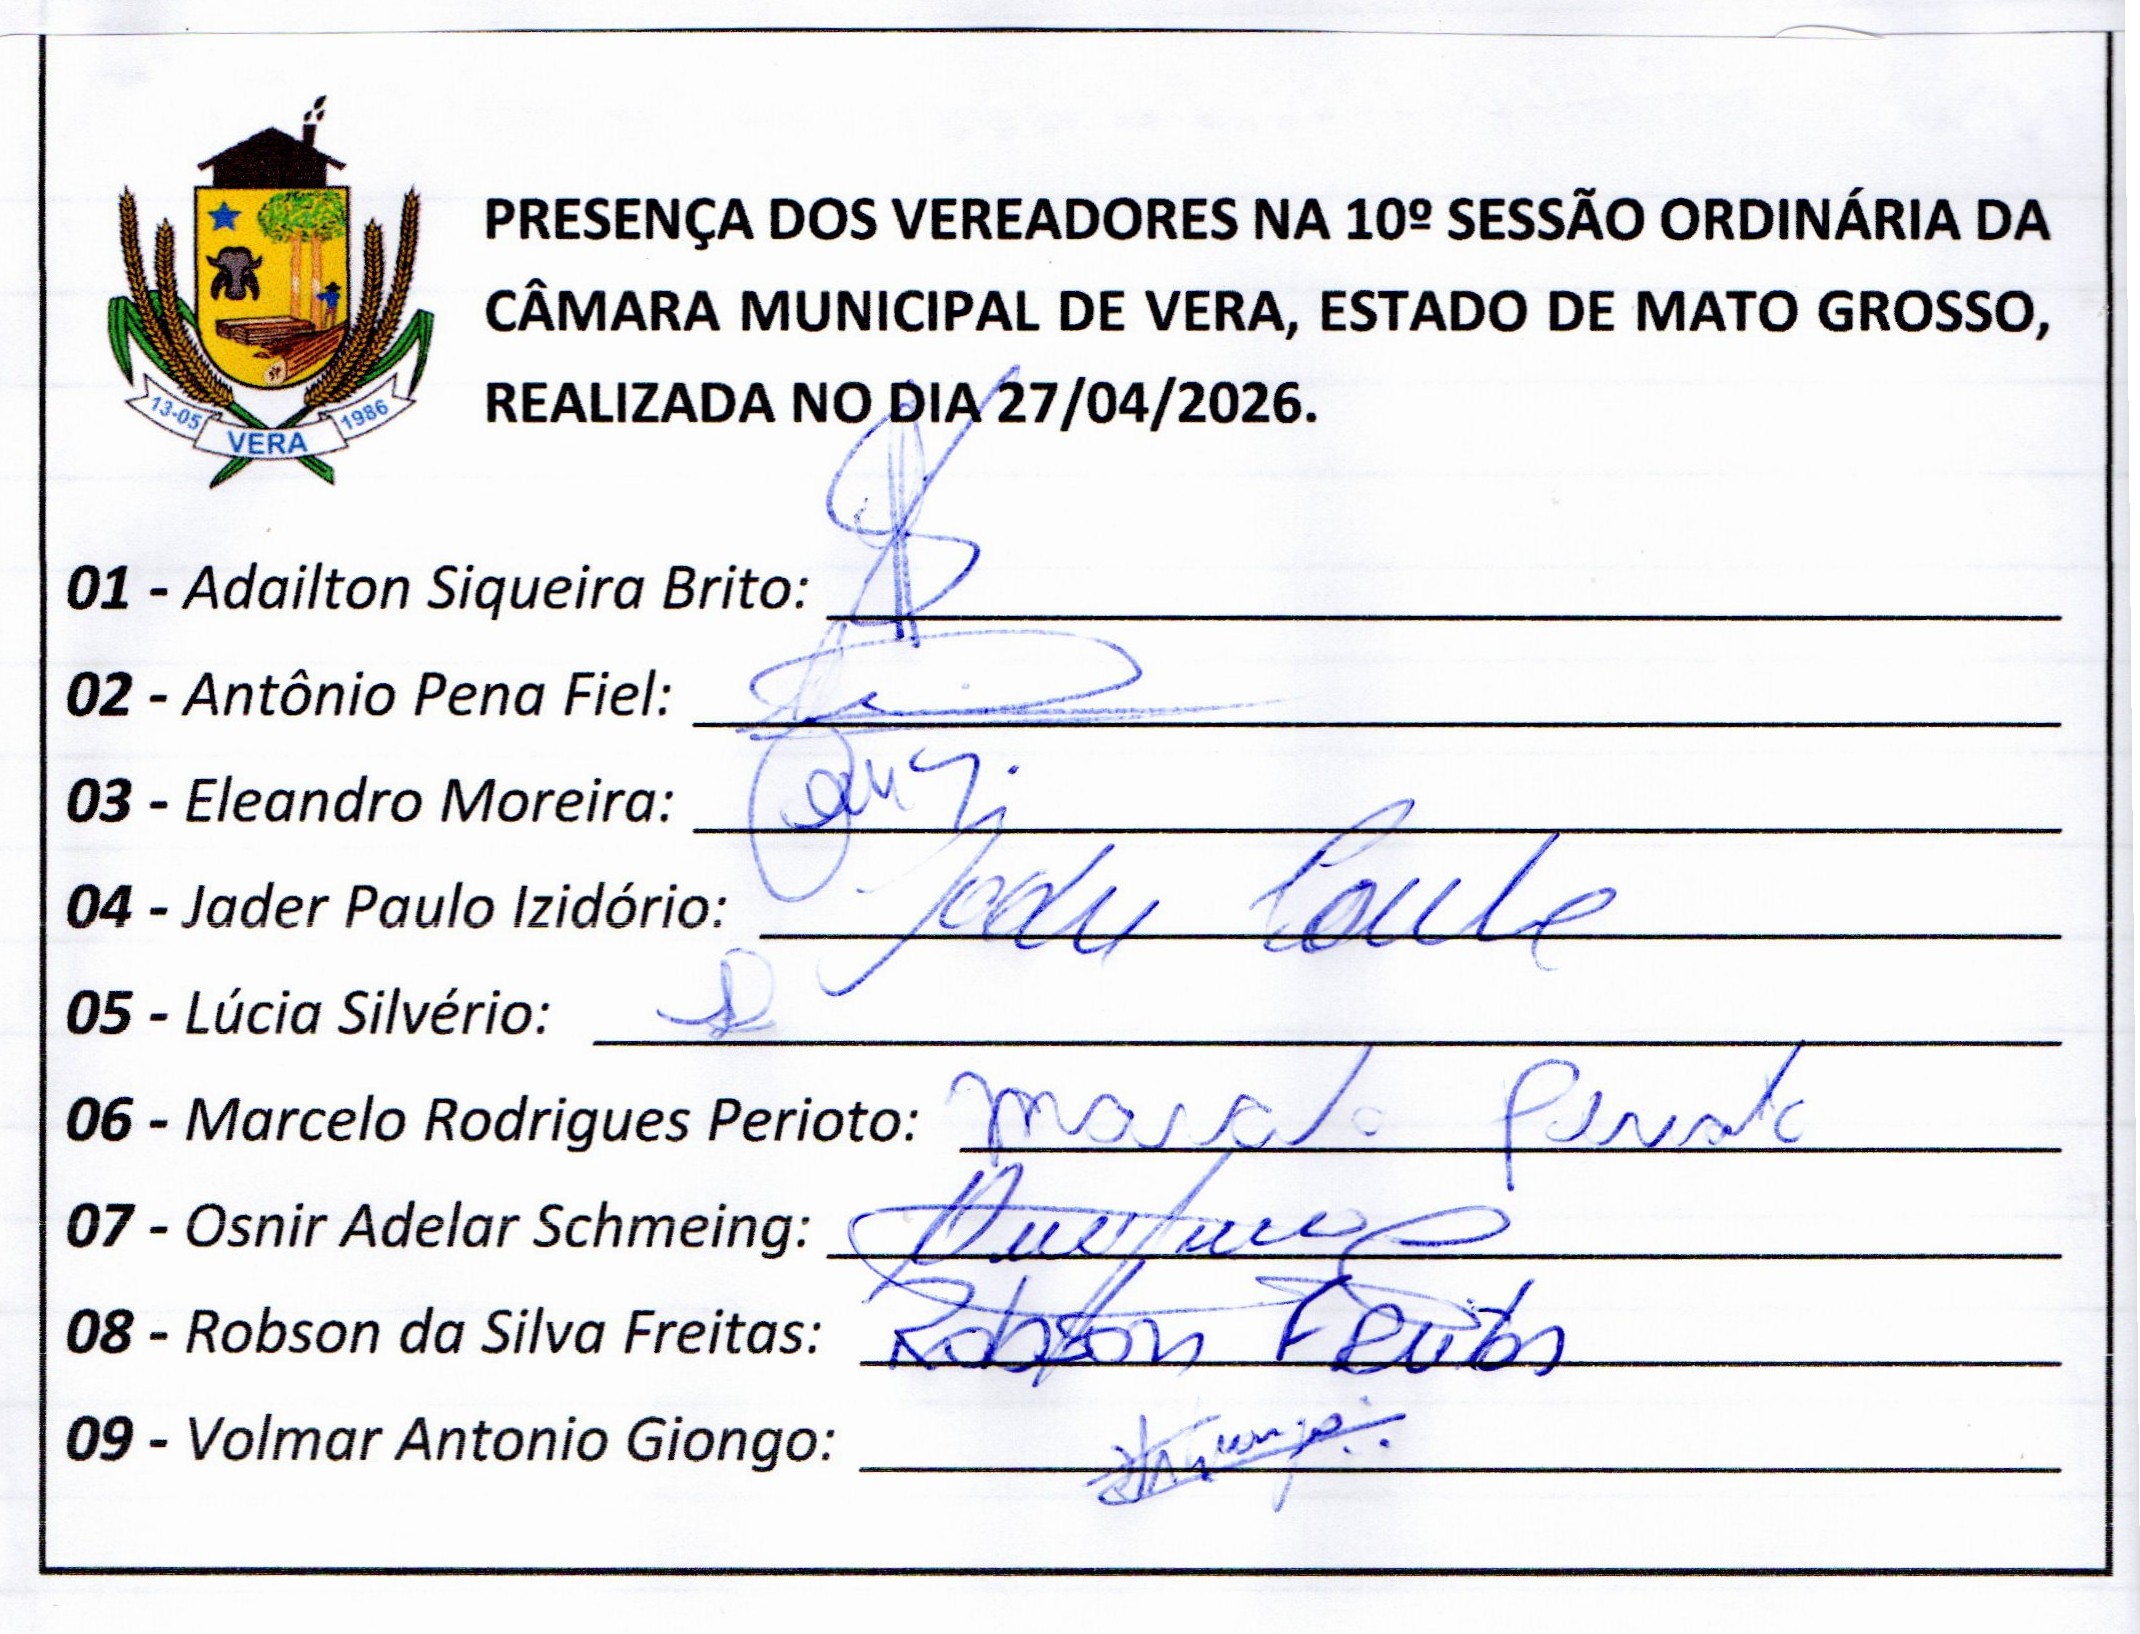 PRESENÇA DOS VEREADORES NA 10º SESSÃO ORDINÁRIA DA
CÂMARA MUNICIPAL DE VERA, ESTADO DE MATO GROSSO,
REALIZADA NO DIA 27/04/2026.
13-05 VERA 1986
01 - Adailton Siqueira Brito:
02 - Antônio Pena Fiel:
03 - Eleandro Moreira:
04 - Jader Paulo Izidório: Jader Paulo
05 - Lúcia Silvério:
06 - Marcelo Rodrigues Perioto: Marcelo Perioto
07 - Osnir Adelar Schmeing:
08 - Robson da Silva Freitas: Robson Freitas
09 - Volmar Antonio Giongo: